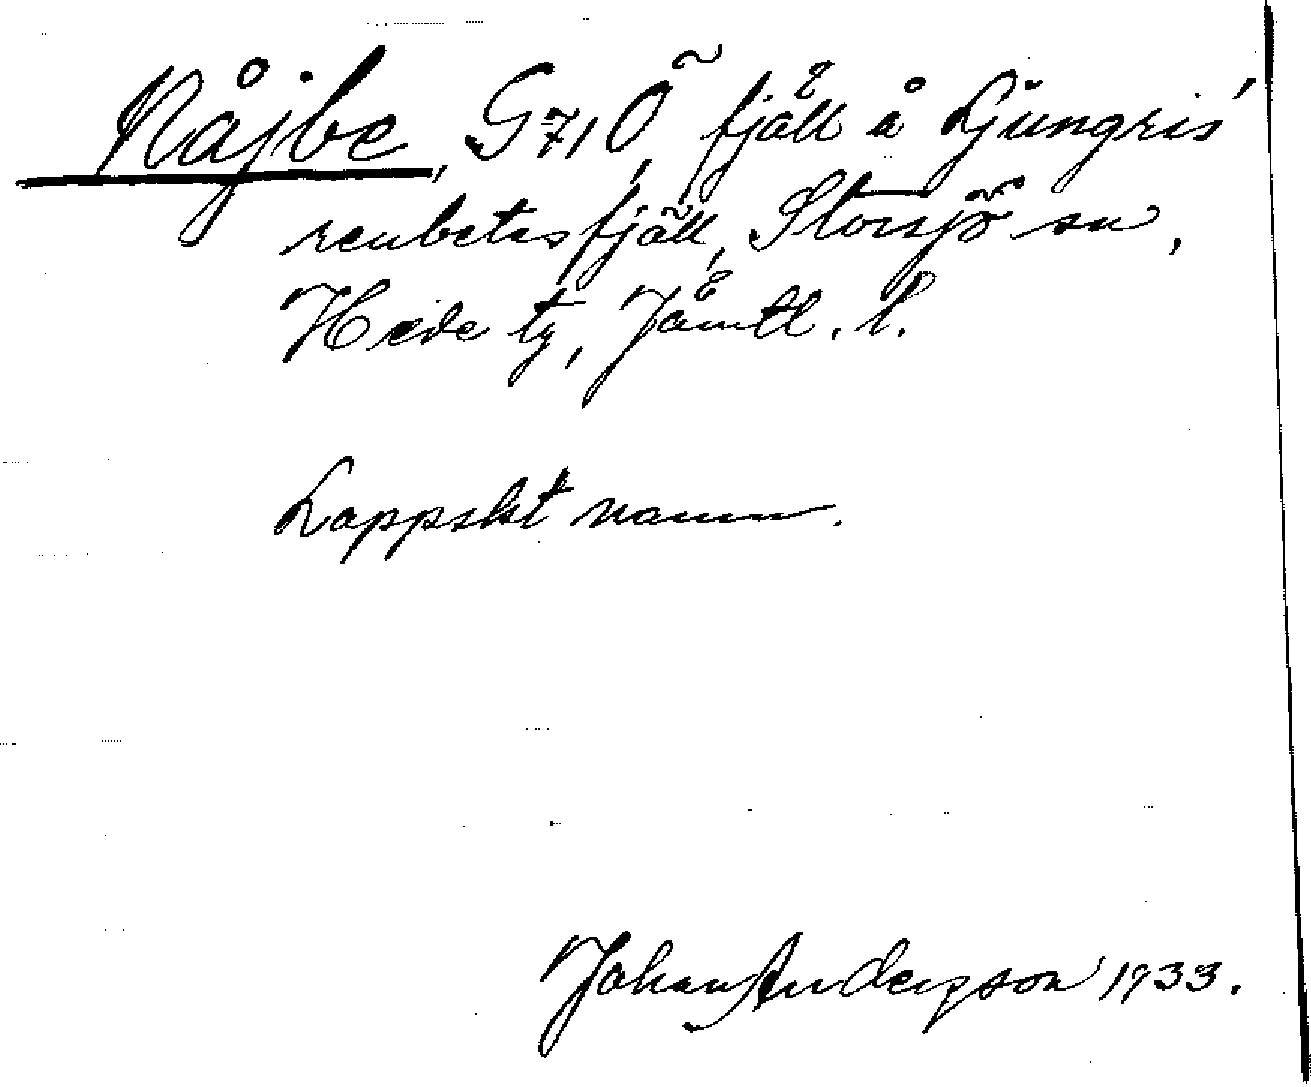 Råjbe, G71Ö, fjäll å Ljungris'
renbetesfjäll, Storsjö sn,
Hede tg, Jämtl. l.
Lappskt namn.
Johan Andersson 1933.